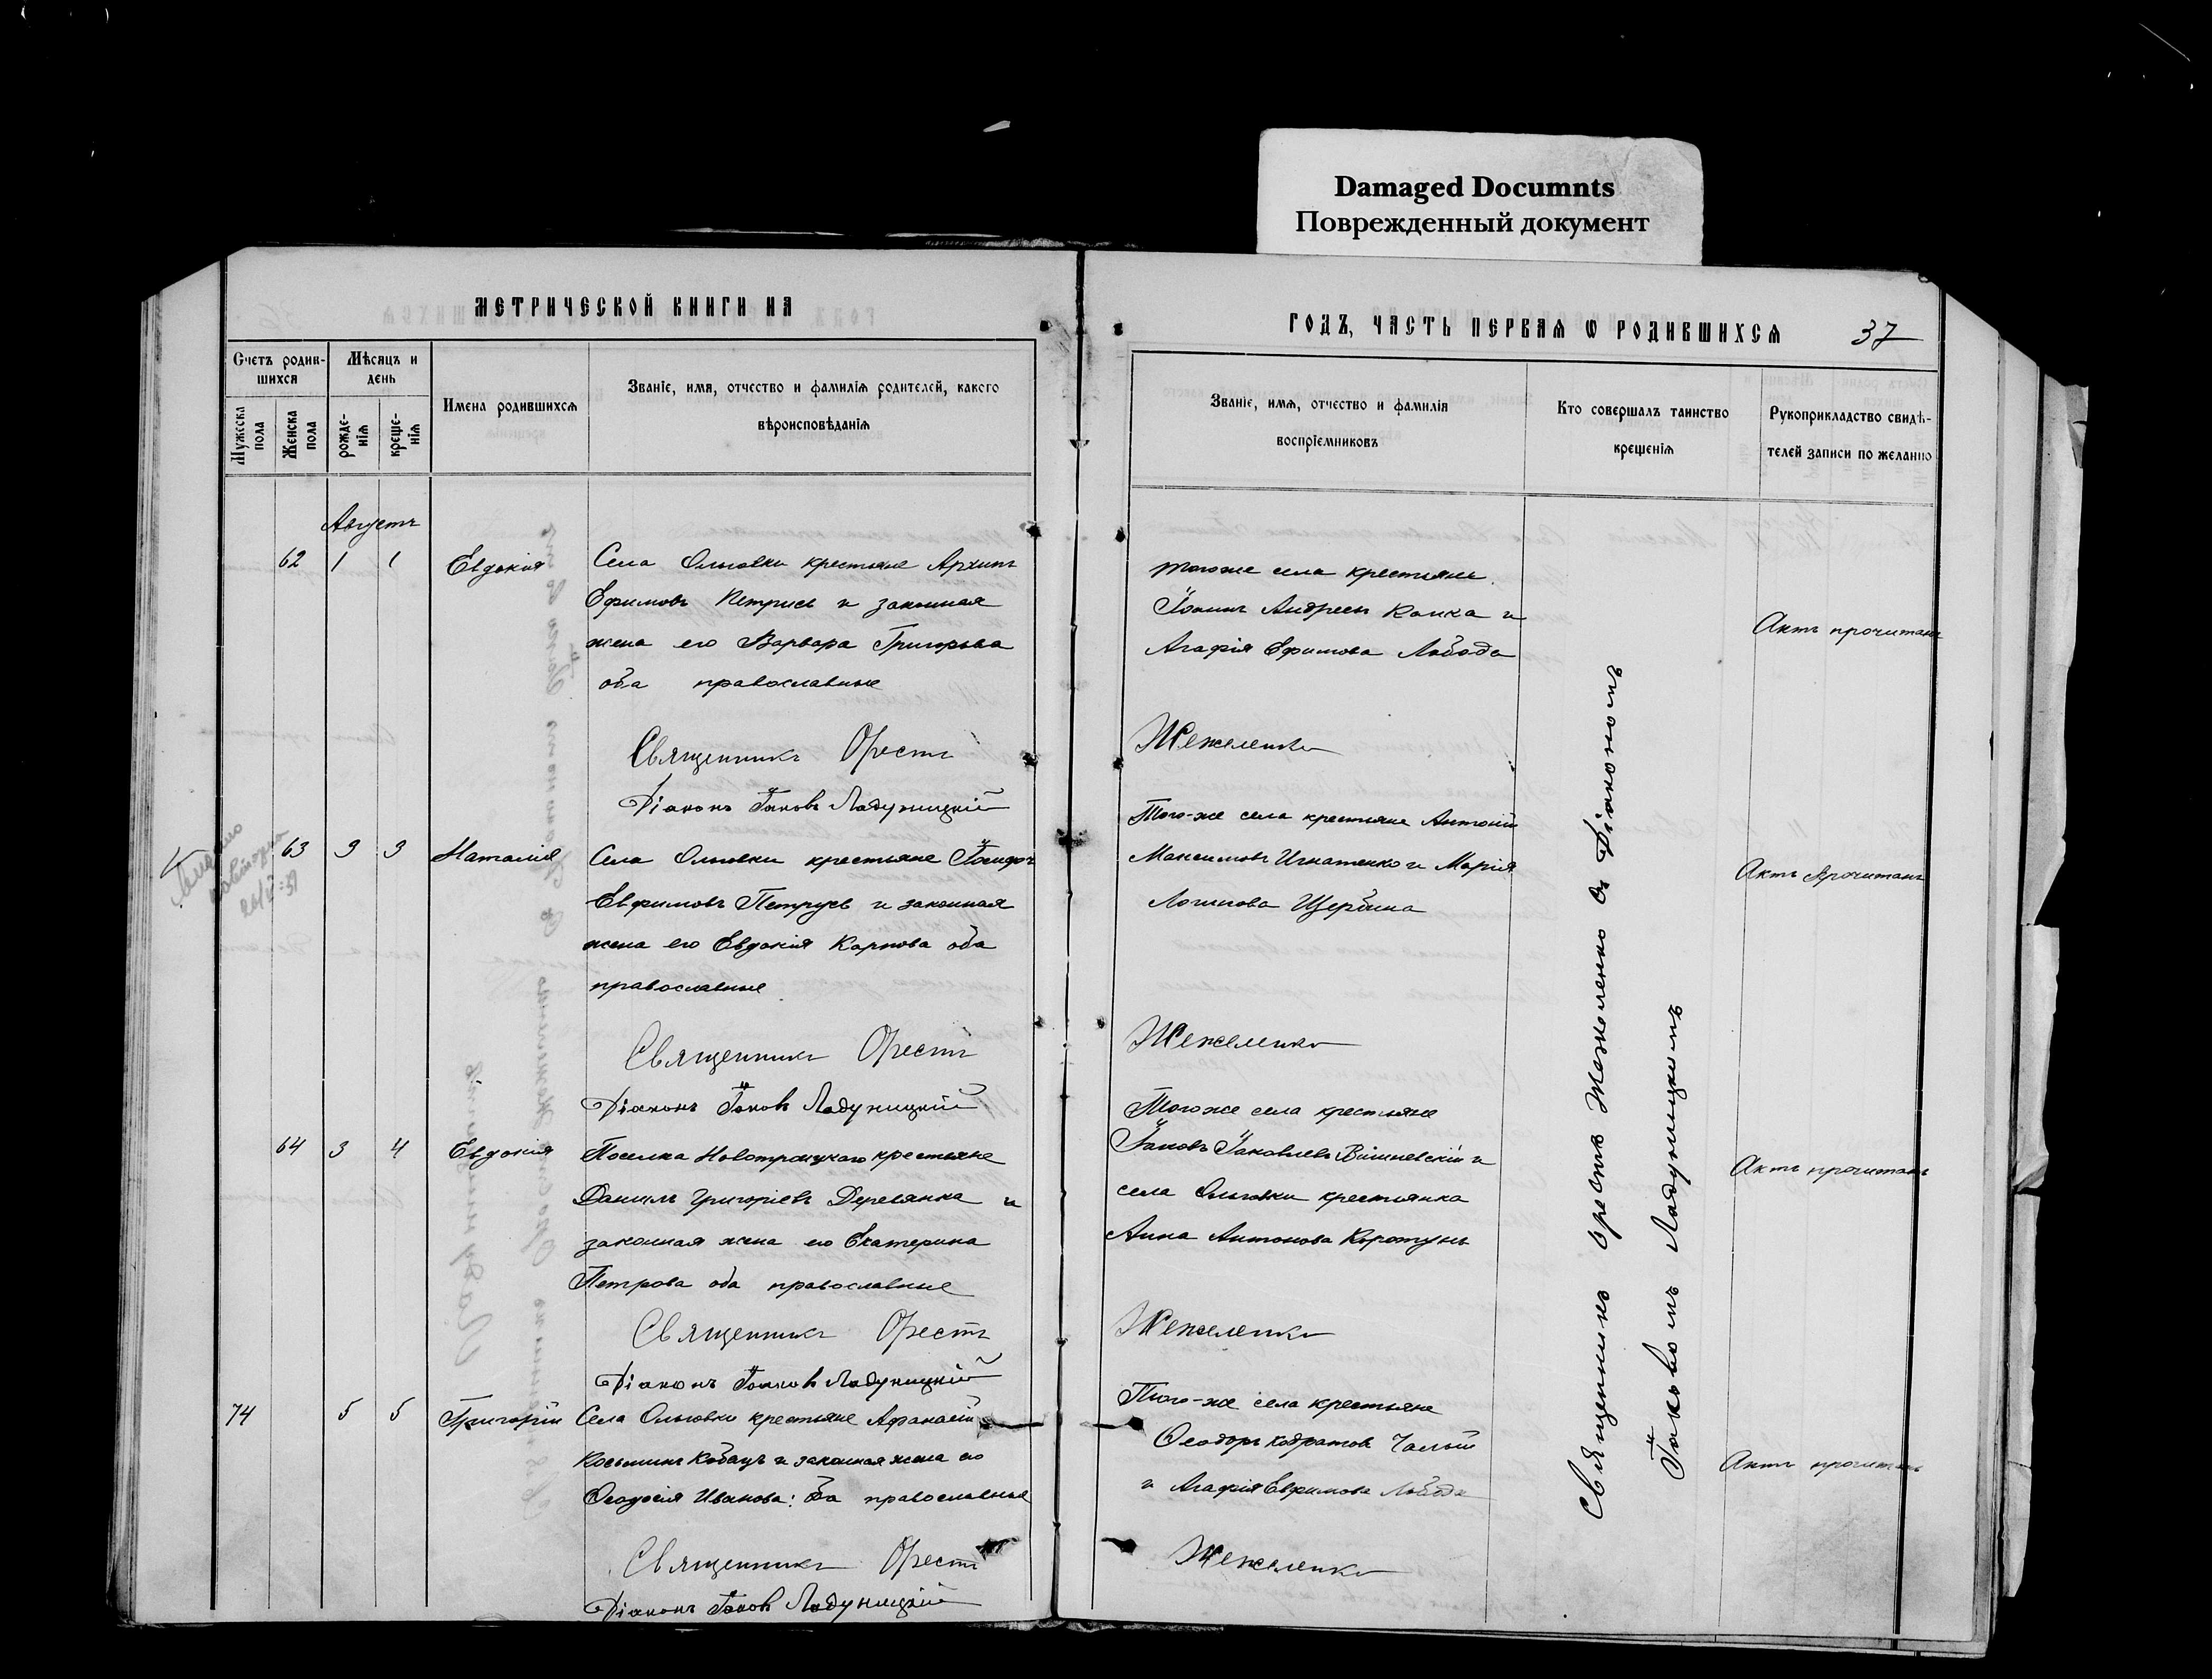 Damaged Documnts
Поврежденный документ
МЕТРИЧЕСКОЙ КНИГИ НА
ГОДЪ, ЧАСТЬ ПЕРВАЯ Ѡ РОДИВШИХСЯ
37
Счетъ родив-
шихся
Мужеска
пола
Женска
пола
Мѣсяцъ и
день
рожде-
нія
креще-
нія
Имена родившихся
Званіе, имя, отчество и фамилія родителей, какого
вѣроисповѣданія
Званіе, имя, отчество и фамилія
воспріемниковъ
Кто совершалъ таинство
крещенія
Рукоприкладство свидѣ-
телей записи по желанію
Августъ
62 1 1 Евдокія
Села Ольговки крестьяне Архипъ
Ефимовъ Петрусь и законная
жена его Варвара Григорьева
оба православные
тогоже села крестьяне
Іоаннъ Андреевъ и
Агафія Ефимова Лобода
Актъ прочитанъ
Священникъ Орестъ Жежеленко
Діаконъ Іаковъ Ладужицкій
63 3 3 Наталія
Села Ольговки крестьяне Іосифъ
Евфимовъ Петрусь и законная
жена его Евдокія Карпова оба
православные
Того-же села крестьяне Антоній
Максимовъ Игнатенко и Марія
Логинова Щербина
Актъ прочитанъ
Священникъ Орестъ Жежеленко
Діаконъ Іаковъ Ладужицкій
64 3 4 Евдокія
Поселка Новотроицкаго крестьяне
Даніилъ Григоріевъ Деревянка и
законная жена его Екатерина
Петрова оба православные
Тогоже села крестьяне
Іаковъ Іаковлевъ Вишневскій и
села Ольговки крестьянка
Анна Антонова Коротунъ
Актъ прочитанъ
Священникъ Орестъ Жежеленко
Діаконъ Іаковъ Ладужицкій
74 5 5 Григорій
Села Ольговки крестьяне Афанасій
Косьминъ Кобецъ и законная жена его
Ѳеодосія Иванова: оба православные
Того-же села крестьяне
Ѳеодоръ Кодратовъ Чалый
и Агафія Евфимова Лобода
Актъ прочитанъ
Священникъ Орестъ Жежеленко
Діаконъ Іаковъ Ладужицкій
Священникъ Орестъ Жежеленко съ Діакономъ
Іаковомъ Ладужицкимъ